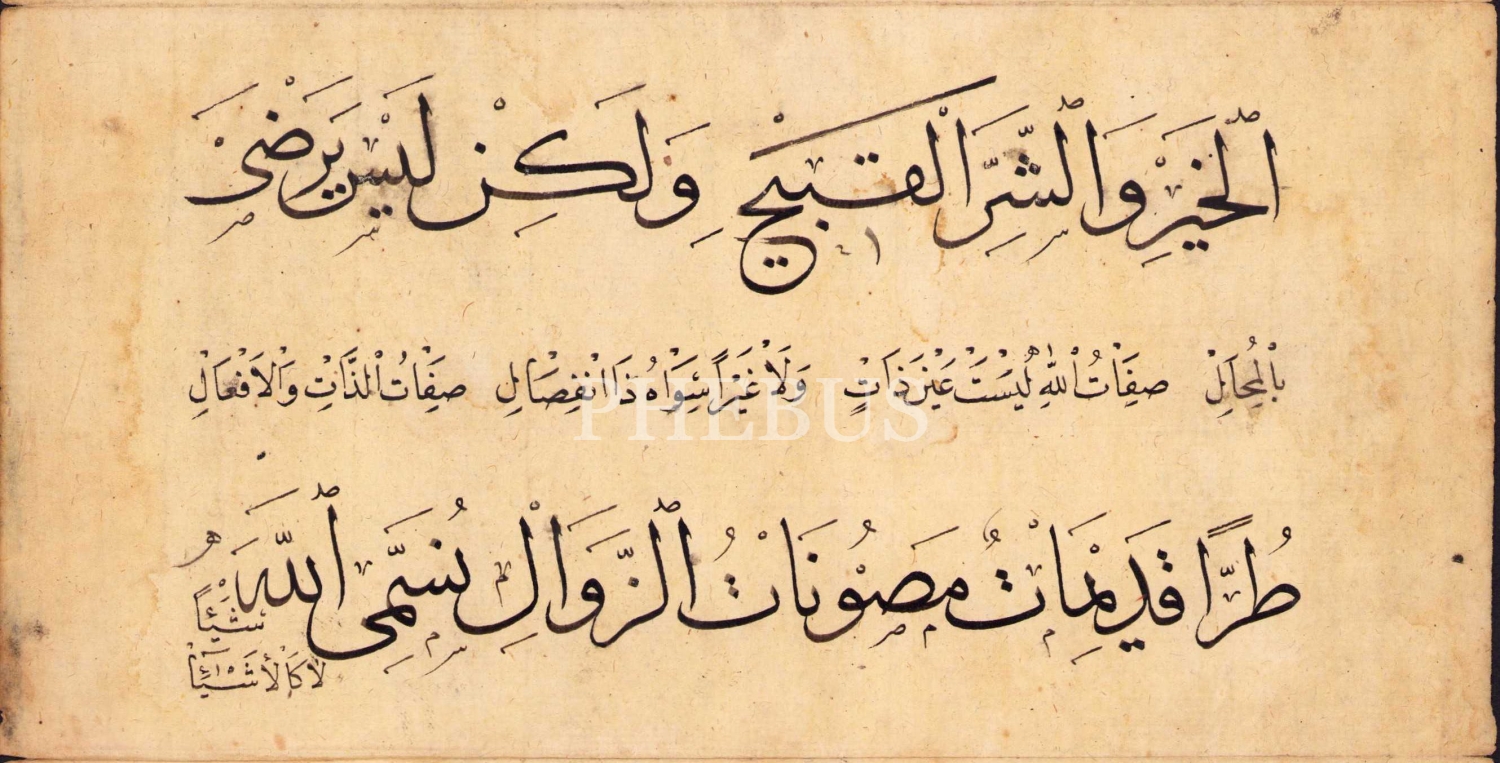 اَلْخَيْرِ وَالشَّرِّ الْقَبِيحِ وَلَكِنْ لَيْسَ يَرْضَى
بِالْمُحَالِ صِفَاتُ اللهِ لَيْسَتْ عَيْنَ ذَاتٍ وَلَا غَيْرًا سِوَاهُ ذَا انْفِصَالِ صِفَاتُ الذَّاتِ وَالْاَفْعَالِ
PHEBUS
طُرًّا قَدِيمَاتٌ مَصُونَاتُ الزَّوَالِ نُسَمِّى اللهَ
شَيْئًا
لَا كَالْأَشْيَا